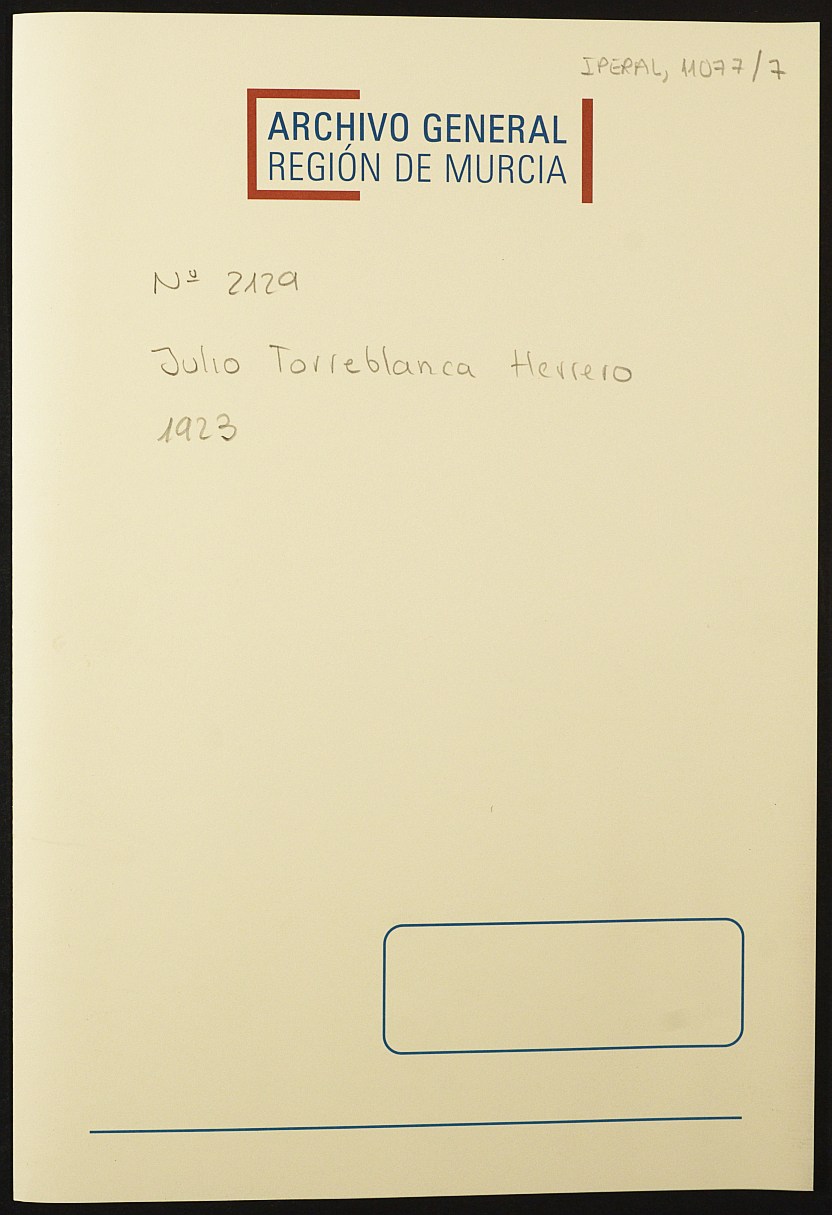 IPERAL, 11077/7
ARCHIVO GENERAL
REGIÓN DE MURCIA
Nº 2129
Julio Torreblanca Herrero
1923